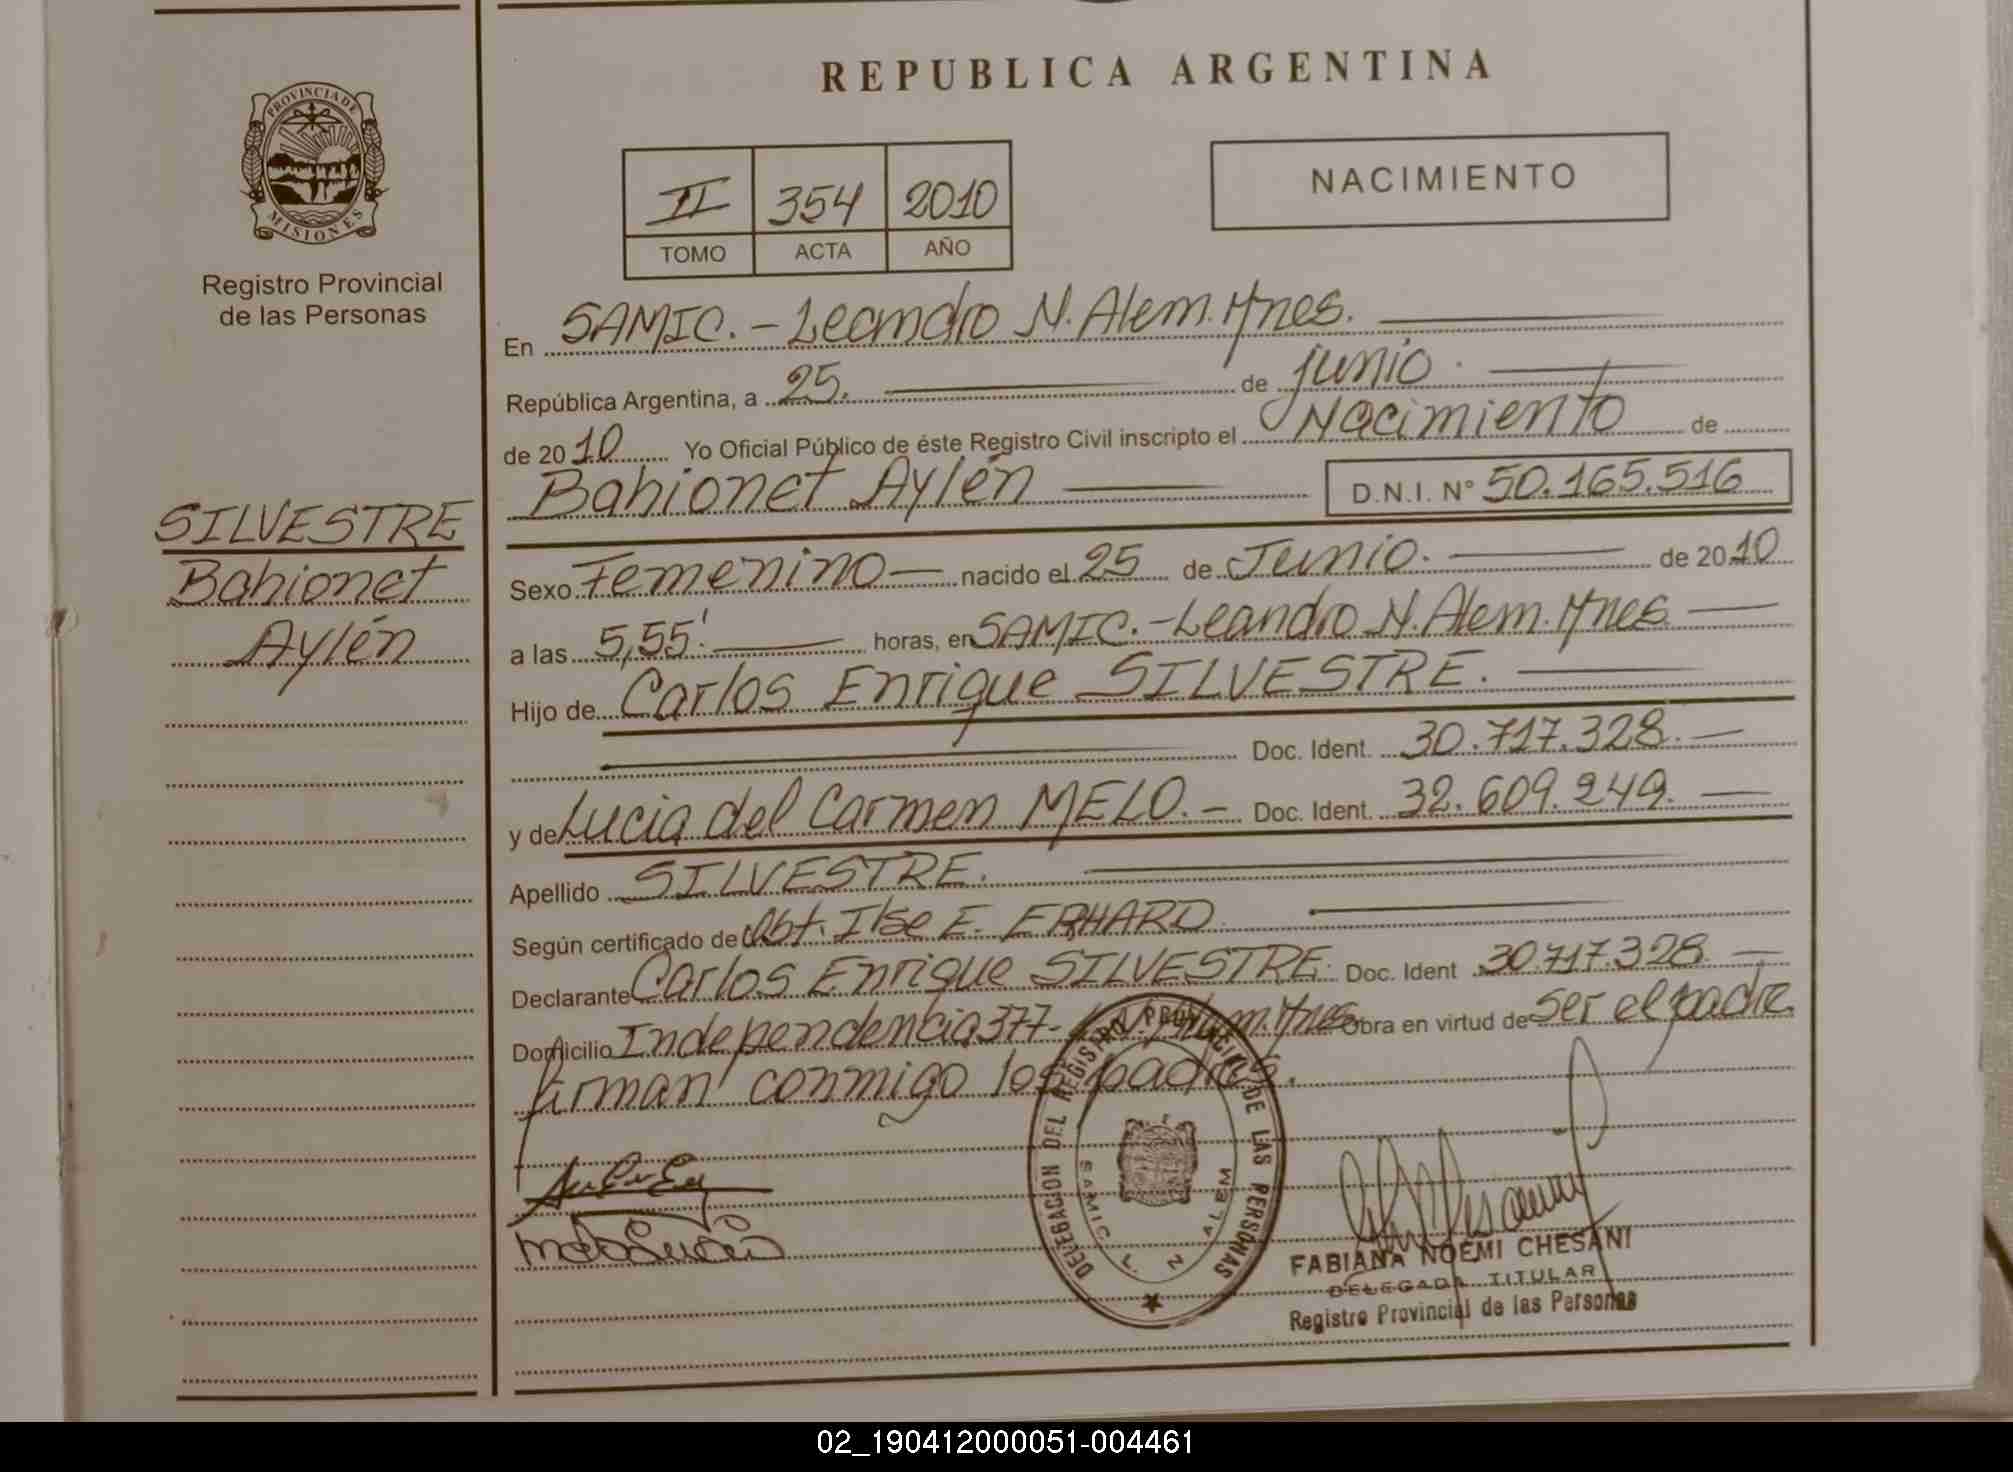 REPUBLICA ARGENTINA
PROVINCIA DE
MISIONES
Registro Provincial
de las Personas
II 354 2010
TOMO ACTA AÑO
NACIMIENTO
En SAMIC.- Leandro N. Alem. Mnes.
República Argentina, a 25. de junio.
de 2010 Yo Oficial Público de éste Registro Civil inscripto el Nacimiento de
Bahionet Aylén D.N.I. N° 50.165.516
SILVESTRE
Bahionet
Aylén
Sexo Femenino nacido el 25 de Junio. de 2010
a las 5,55' horas, en SAMIC.-Leandro N. Alem. Mnes.
Hijo de Carlos Enrique SILVESTRE.
Doc. Ident. 30.717.328.
y de Lucia del Carmen MELO.- Doc. Ident. 32.609.249.
Apellido SILVESTRE.
Según certificado de Obt. Ilse E. ERHARD
Declarante Carlos Enrique SILVESTRE. Doc. Ident 30.717.328.
Domicilio Independencia 377- Alem. Mnes Obra en virtud de ser el padre.
firman conmigo los padres.
DELEGACION DEL REGISTRO PROVINCIAL DE LAS PERSONAS
SAMIC L. N ALEM
FABIANA NOEMI CHESANI
DELEGADA TITULAR
Registro Provincial de las Personas
02_190412000051-004461